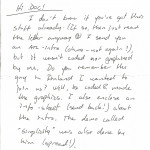 Hi Doc!
I don't know if you've got this
stuff already. (If so, then just read
the letter anyway) I send you
an Ace-intro (choro-not again!),
but it wasn't coded nor graphixed
by me. Do you remember the
guy in Finland I wanted to
join us? Well, he coded & made
the graphixs. I also enclose an
info-sheet (send back!) about
the intro. The demo called
"Singlisity" was also done by
him (spread!).